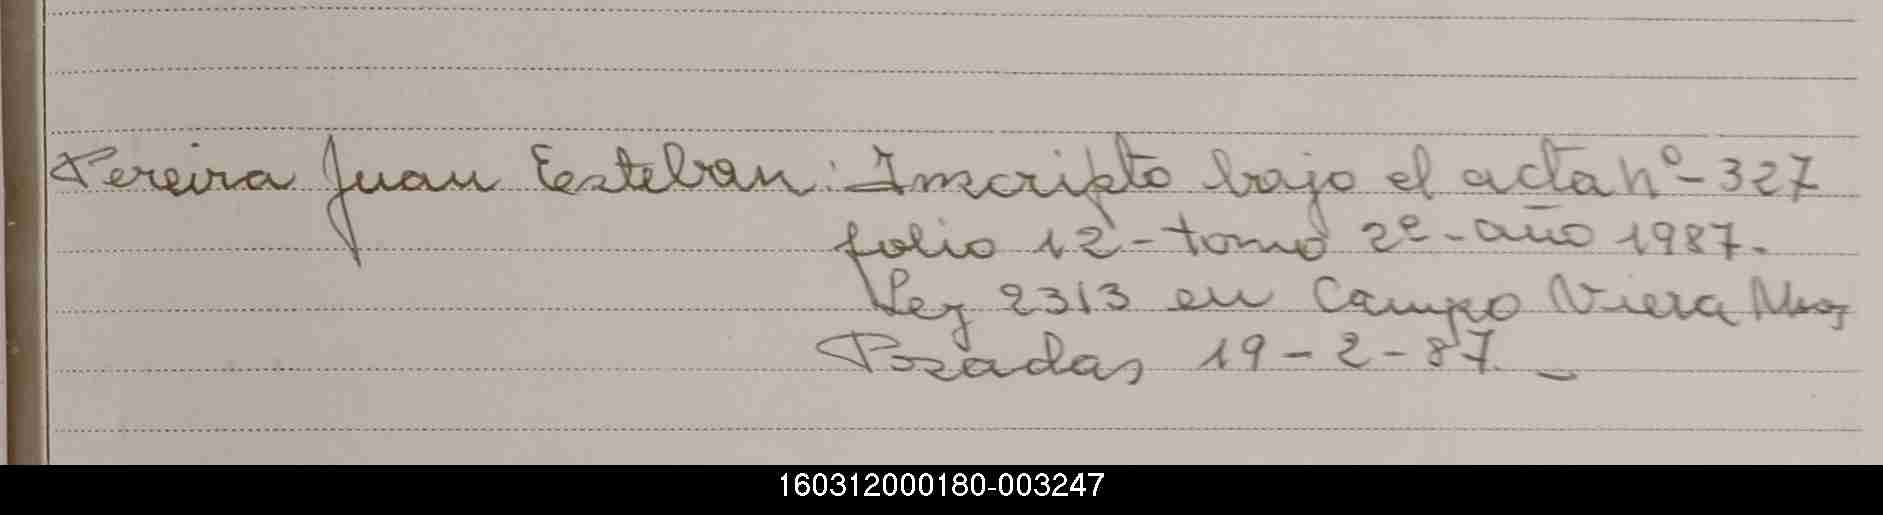 Pereira Juan Esteban: Inscripto bajo el acta nº-327
folio 12-tomo 2º-año 1987.
Ley 2313 en Campo Viera Mnes
Posadas 19-2-87._
160312000180-003247